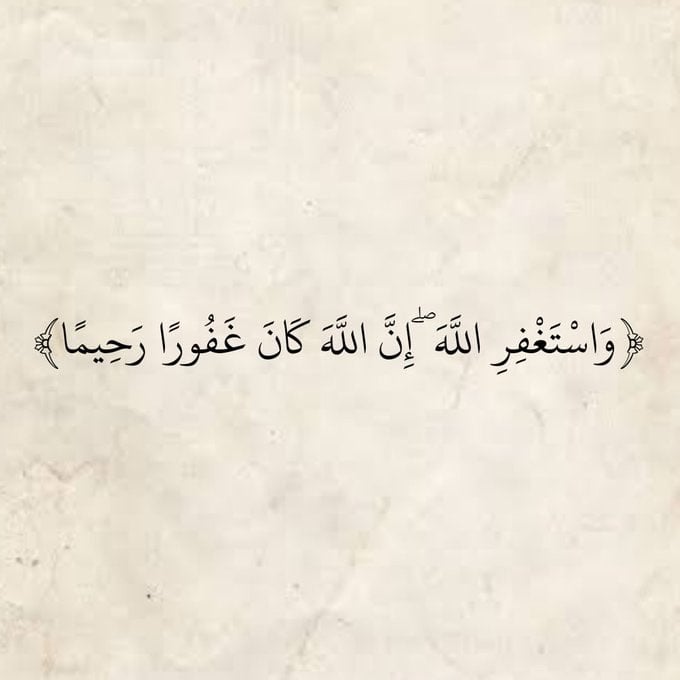 ﴿وَاسْتَغْفِرِ اللَّهَ ۖ إِنَّ اللَّهَ كَانَ غَفُورًا رَحِيمًا﴾